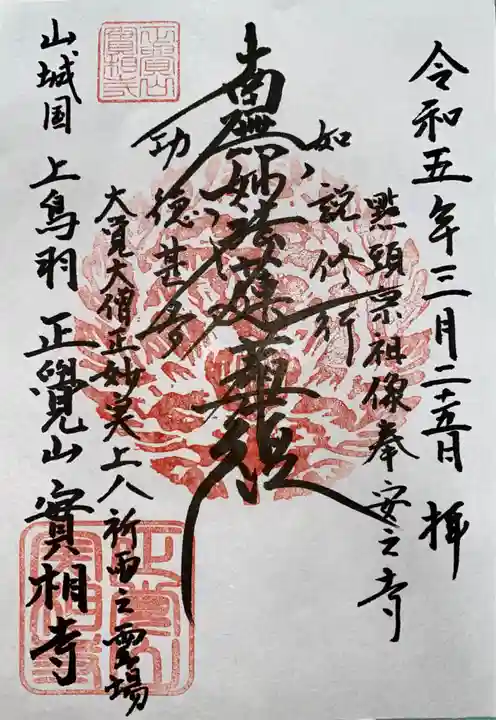 令和五年三月二十五日 拝
點頭宗祖像奉安之寺
如説修行
南無妙法蓮華経
功徳甚多
大覚大僧正妙美上人祈雨之霊場
山城国 上鳥羽 正覺山 實相寺